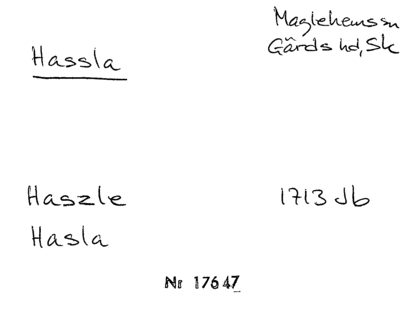 Maglehems sn
Gärds hd, Sk
Hassla
Haszle 1713 Jb
Hasla
Nr 17647